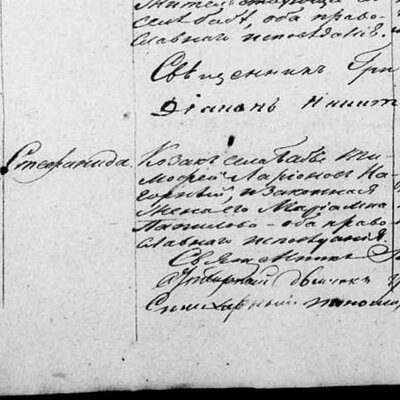 села Бабе, оба право-
славнаго исповѣданія.
Священникъ Гри
Діаконъ Никит
Стефанида.
Козакъ села Бабе Ти-
мофей Ларіоновъ На-
горный, и законная
жена его Маріамна
Данилова - оба право-
славнаго исповѣданія.
Священникъ
дьячекъ
пономар